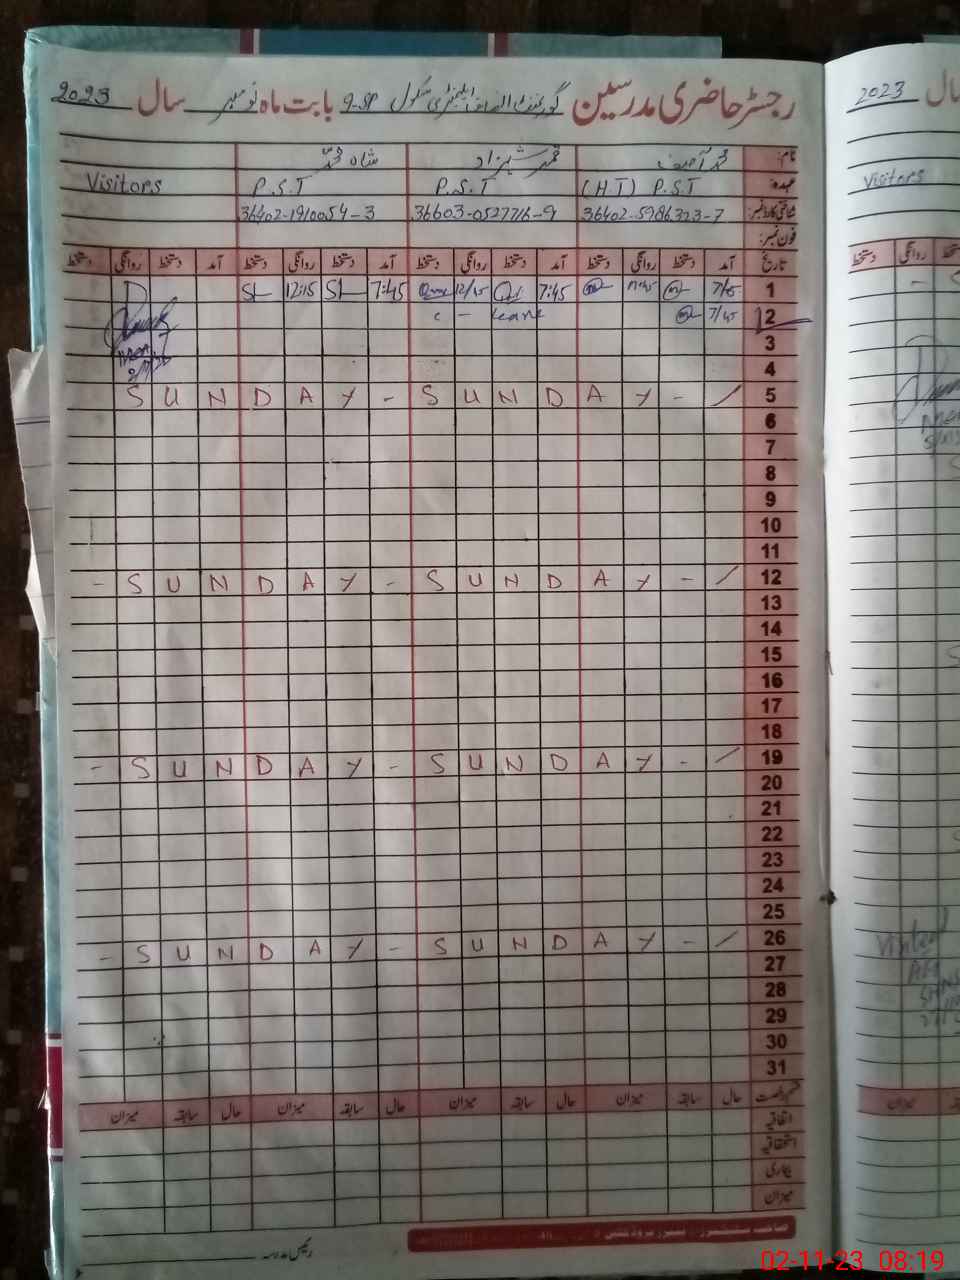 رجسٹر حاضری مدرسین گورنمنٹ ایلیمنٹری سکول 9-SP بابت ماہ نومبر سال 2023
نام: محمد آصف قمر شہزاد شاہ محمد
عہدہ: P.S.T (HT) P.S.T P.S.T Visitors
شناختی کارڈ نمبر: 36402-5986323-7 36603-0527716-9 36402-1910054-3
فون نمبر:
تاریخ آمد دستخط روانگی دستخط آمد دستخط روانگی دستخط آمد دستخط روانگی دستخط آمد دستخط روانگی دستخط
1 7/45 7:45 12/15 7:45 SL 12:15 SL
2 7/45 leave
3
4
5 SUNDAY - SUNDAY -
6
7
8
9
10
11
12 - SUNDAY - SUNDAY -
13
14
15
16
17
18
19 - SUNDAY - SUNDAY -
20
21
22
23
24
25
26 - SUNDAY - SUNDAY -
27
28
29
30
31
قسم رخصت حال سابقہ میزان حال سابقہ میزان حال سابقہ میزان حال سابقہ میزان
اتفاقیہ
استحقاقیہ
بیماری
میزان
رئیس مدرسہ
سال 2023
Visitors
روانگی دستخط
Visited
میزان
02-11-23 08:19